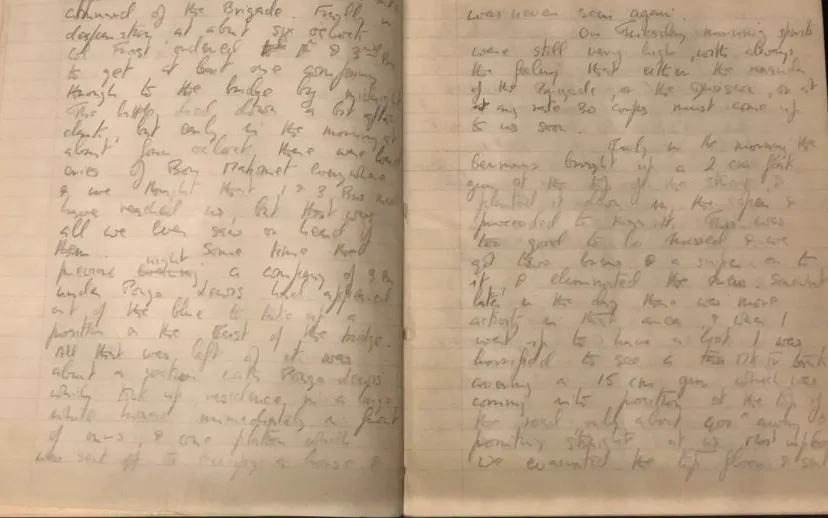 command of the Brigade. Finally in
desperation, at about six o'clock
Col Frost ordered 1 & 3rd Bn
to get at best one company
through to the bridge by midnight
The battle died down a bit after
dark, but early in the morning at
about four o'clock, there were loud
cries of Boy Mahomet everywhere
& we thought that 1 & 3 Bns must
have reached us, but that was
all we ever saw or heard of
them. Some time the
previous night a company of 3 Bn
under Pongo Lewis had appeared
out of the blue to take up a
position on the East of the bridge.
All that was left of it was
about a section with Pongo Lewis
which took up residence in a large
white house immediately in front
of ours, & one platoon which
was sent off to occupy a house &
was never seen again.
On Tuesday morning spirits
were still very high, with always
the feeling that either the remainder
of the Brigade, or the Division, or at
any rate 30 Corps must come up
to us soon.
Early in the morning the
Germans brought up a 2 cm flak
gun at the top of the street, &
planted it down in the open &
proceeded to man it. This was
too good to be missed & we
got two brens & a sniper on to
it, & eliminated the crew. Somewhat
later in the day there was more
activity in that area & when I
went up to have a look I was
horrified to see a tank
a 15 cm gun, which was
coming into position at the top of
the road only about 400 away &
pointing straight at us,
We evacuated the top floor & sent